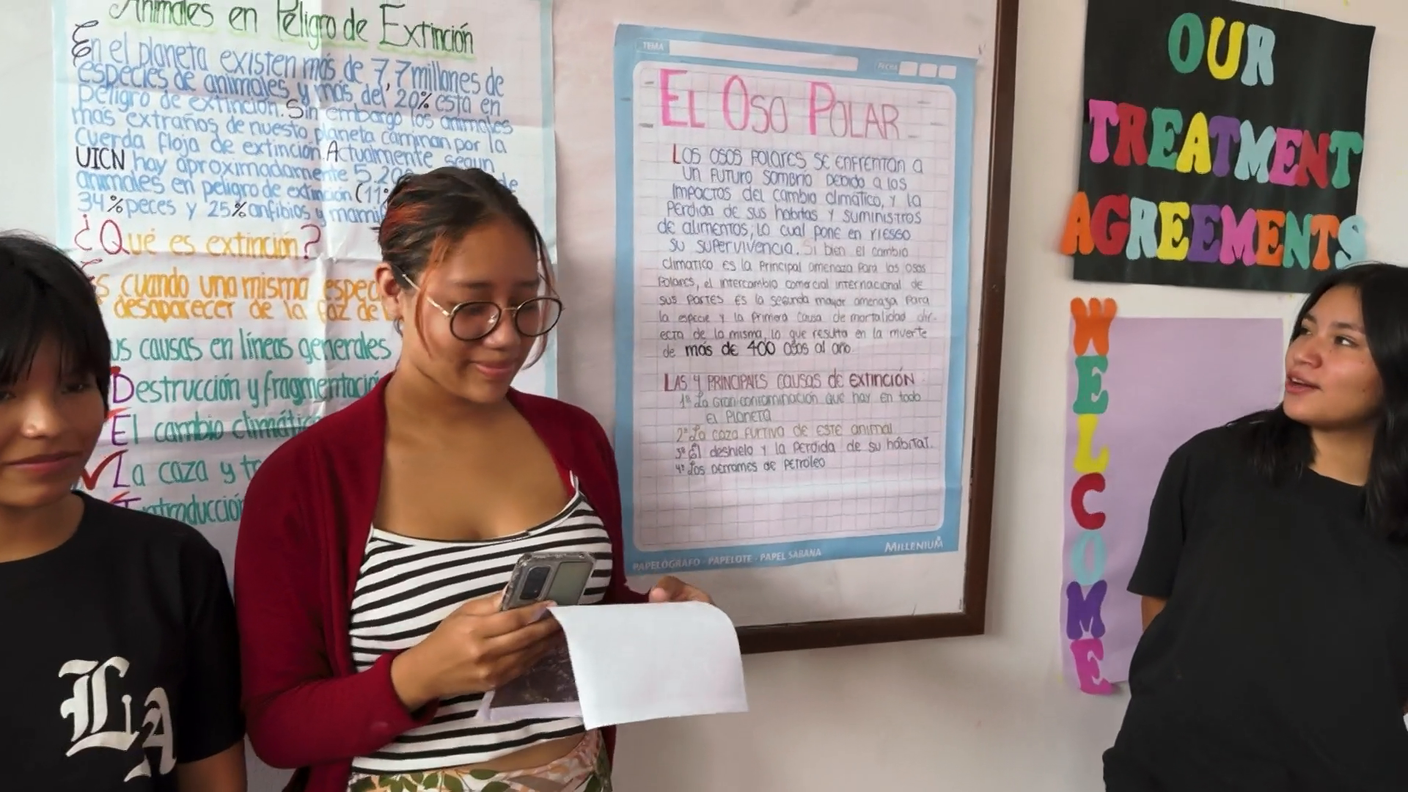 Animales en Peligro de Extinción
En el planeta existen más de 7,7 millones de
especies de animales y más del 20% está en
peligro de extinción. Sin embargo los animales
mas extraños de nuesto planeta caminan por la
cuerda floja de extinción. Actualmente segun
UICN hay aproximadamente 5.20
animales en peligro de extinción (11% de
34% peces y 25% anfibios y mamif
¿Qué es extinción?
Es cuando una misma especi
desaparecer de la faz de l
us causas en líneas generales
Destrucción y fragmentació
El cambio climátic
La caza y tr
Introducción
TEMA
FECHA
EL OSO POLAR
LOS OSOS POLARES SE ENFRENTAN A
UN FUTURO SOMBRIO DEBIDO A LOS
IMPACTOS DEL CAMBIO CLIMÁTICO, Y LA
PERDIDA DE SUS HÁBITAS Y SUMINISTROS
DE ALIMENTOS, LO CUAL PONE EN RIESGO
SU SUPERVIVENCIA. Si bien el cambio
climatico es la principal amenaza para los osos
polares, el intercambio comercial internacional de
sus partes es la segunda mayor amenaza para
la especie y la primera causa de mortalidad dir-
ecta de la misma, lo que resulta en la muerte
de más de 400 osos al año.
LAS 4 PRINCIPALES CAUSAS DE EXTINCIÓN
1º La gran contaminación que hay en todo
el planeta
2º La caza furtiva de este animal
3º El deshielo y la perdida de su hábitat.
4º Los derrames de petróleo
PAPELÓGRAFO - PAPELOTE - PAPEL SABANA
MILLENIUM
OUR
TREATMENT
AGREEMENTS
WELCOME
LA